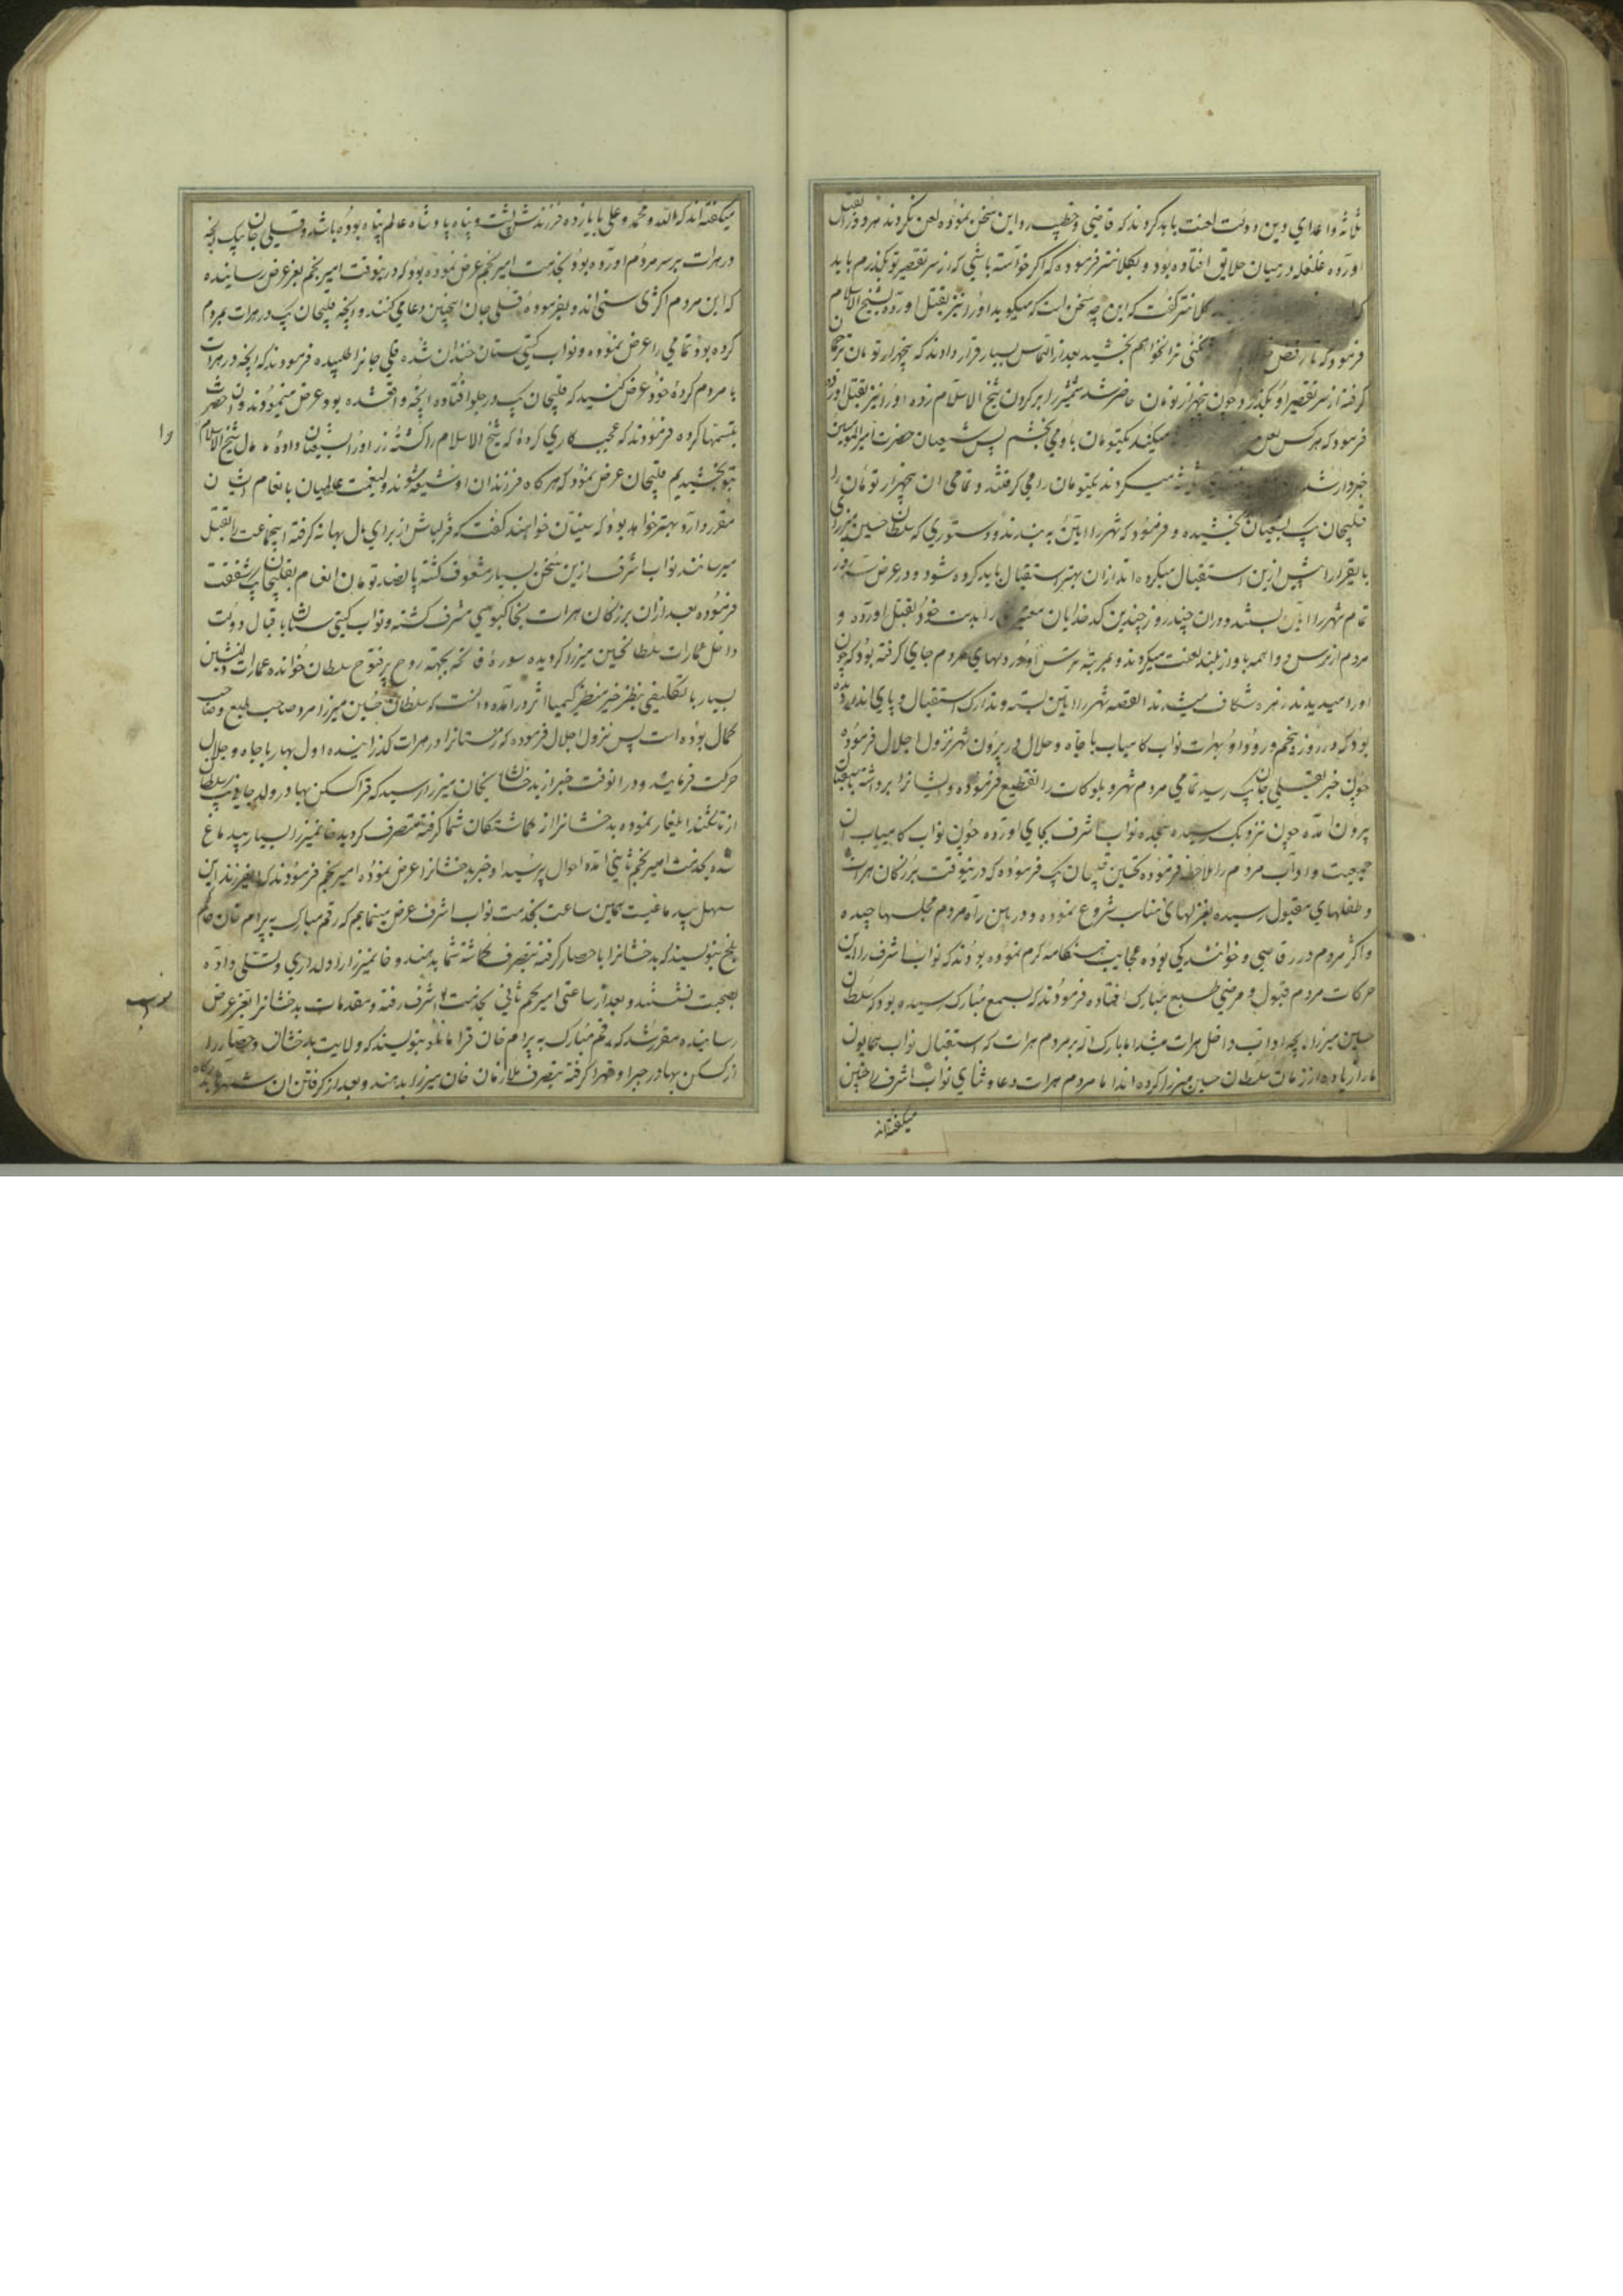 ثلثه و اعدای دین و دولت لعنت باید کردند که قاضی و خطیب و این سخن نموده لعن نکردند هر دو را بقتل
آورده غلغله در میان خلایق افتاده بود و بکلانتر فرموده که اگر خواسته باشی که از سر تقصیر تو بگذرم باید
کلانتر گفت که این چه سخن است که میگوید او را نیز بقتل آورده بشیخ الاسلام
فرمود که تا رفض نخواهم بخشید بعد از التماس بسیار قرار دادند که پنجهزار تومان ترجمان
گرفته از سر تقصیر او بگذرد و چون پنجهزار تومان حاضر شد شمشیر را بر گردن شیخ الاسلام زده او را نیز بقتل آورد
فرمود که هر کس لعن میکند یکتومان باو می بخشم پس شیعیان حضرت امیرالمومنین
خبردار شد میکردند یکتومان را می گرفتند و تمامی ان پنجهزار تومان را
قلیجان بیک بشیعیان بخشیده و فرمود که شهر را آیین به بندند و دستوری که سلطان حسین میرزای
بایقرا را پیش ازین استقبال میکرده اند ازان بهتر استقبال باید کرده شود و در عرض سه روز
تمام شهر را آیین بستند و دران چند روز چندین کدخدایان معتبر را بدست خود بقتل آورده و
مردم از ترس و واهمه باواز بلند لعنت میکردند و بمرتبه ترس او در دلهای مردم جای گرفته بود که چون
او را میدیدند زهره شکاف میشدند القصه شهر را آیین بسته و تدارک استقبال و پای انداز دیده
بود که در روز پنجم ورود او بهرات نواب کامیاب با جاه و جلال در بیرون شهر نزول اجلال فرموده
چون خبر بقلی جان بیک رسید تمامی مردم شهر و بلوکات را تقطیع فرموده و ایشانرا برداشته باستقبال
بیرون آمده چون نزدیک رسیده سجده نواب اشرف بجای آورده چون نواب کامیاب آن
جمعیت و آداب مردم را ملاحظه فرموده تحسین قلیجان بیک فرموده که درینوقت بزرگان هرات
و طفلهای مقبول رسیده بغزلهای مناسب شروع نموده و در این راه مردم مجلسها چیده
و اکثر مردم در رقاصی و خوانندگی بوده عجایب هنگامه گرم نموده بودند که نواب اشرف را این
حرکات مردم قبول و مرضی طبع مبارک افتاده فرمودند که بسمع مبارک رسیده بود که سلطان
حسین میرزا بچه آداب داخل هرات میشد اما مبارک آن بر مردم هرات که استقبال نواب همایون
ما را زیاده از زمان سلطان حسین میرزا کرده اند اما مردم هرات دعا و ثنای نواب اشرف را چنین
میگفته اند
میگفته اند که الله و محمد و علی با یازده فرزندش پشت و پناه پادشاه عالم پناه بوده باشد و قلی جان بیک آنچه
در هرات بر سر مردم آورده بود بخدمت امیر نجم عرض نموده بود که درینوقت امیر نجم بعز عرض رسانیده
که این مردم اکثری سنی اند و بفرموده قلی جان اینچنین دعا می کنند و آنچه قلیجان بیک در هرات بمردم
کرده بود تمامی را عرض نموده و نواب گیتی ستان خندان شده قلی جانرا طلبیده فرمودند که آنچه در هرات
با مردم کرده خود عرض کنید که قلیجان بیک در جلو افتاده آنچه واقع شده بود عرض مینمودند و آن حضرت
تبسمها کرده فرمودند که عجیب کاری کرده که شیخ الاسلام را کشته زر او را بشیعیان داده مال شیخ الاسلام
را
بتو بخشیدیم قلیجان عرض نمود که هرگاه فرزندان او شیعه شوند ولینعمت عالمیان بانعام ایشان
مقرر دارد بهتر خواهد بود که سنیان خواهند گفت که قزلباش از برای مال بهانه گرفته اینجماعت را بقتل
میرسانند نواب اشرف ازین سخن بسیار مشعوف گشته پانصد تومان انعام بقلیجان بیک شفقت
فرموده بعد ازان بزرگان هرات بخاکبوسی مشرف گشته و نواب گیتی ستان باقبال و دولت
داخل عمارات سلطان حسین میرزا گردیده سوره فاتحه بجهته روح پر فتوح سلطان خوانده عمارات دلنشین
بسیار با تکلیفی بنظر خیر منظر کیمیا اثر درآمده دانست که سلطان حسین میرزا مرد صاحب طبع و صاحب
کمال بوده است پس نزول اجلال فرموده که زمستانرا در هرات گذرانیده اول بهار با جاه و جلال
حرکت فرمایند و درانوقت خبر از بدخشان بخان میرزا رسید که قرا کسکن بهادر ولد جانی بیک سلطان
از تاشکند ایلغار نموده بدخشانرا از گماشتگان شما گرفته متصرف گردید خانمیرزا بسیار بیدماغ
شده بخدمت امیر نجم ثانی آمده احوال پرسید او خبر بدخشانرا عرض نموده امیر نجم فرمودند که ای فرزند این
سهل بیدماغیست همین ساعت بخدمت نواب اشرف عرض مینمایم که رقم مبارک به بیرام خان حاکم
بلخ بنویسند که بدخشانرا با حصار گرفته بتصرف گماشته شما بدهند و خانمیرزا را دلداری و تسلی داده
بصحبت نشستند و بعد از ساعتی امیر نجم ثانی بخدمت اشرف رفته و مقدمات بدخشانرا بعز عرض
رسانیده مقرر شد که رقم مبارک به بیرام خان قرامانلو بنویسند که ولایت بدخشان و حصار را
از کسکن بهادر جبرا و قهرا گرفته بتصرف ملازمان خان میرزا بدهند و بعد از گرفتن ان